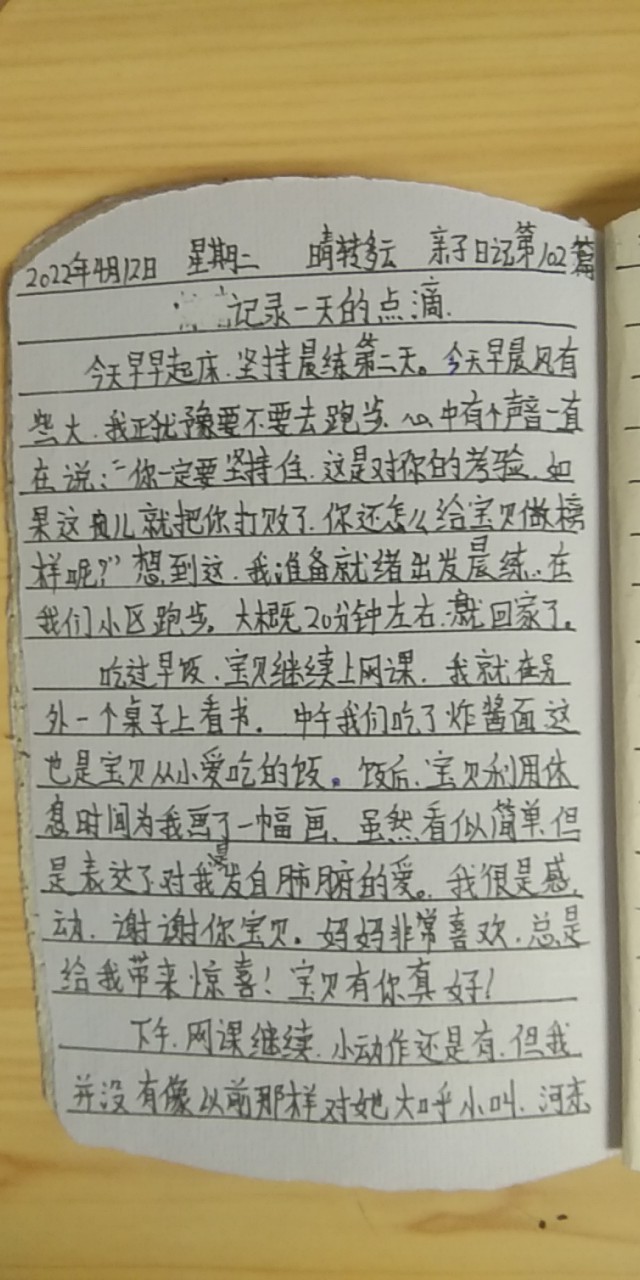 2022年4月12日 星期二 晴转多云 亲子日记第102篇
记录一天的点滴.
今天早早起床.坚持晨练第二天。今天早晨风有
些大.我正犹豫要不要去跑步.心中有个声音一直
在说:“你一定要坚持住.这是对你的考验.如
果这点儿就把你打败了.你还怎么给宝贝做榜
样呢?”想到这.我准备就绪出发晨练.在
我们小区跑步。大概20分钟左右.就回家了。
吃过早饭.宝贝继续上网课.我就在另
外一个桌子上看书。中午我们吃了炸酱面这
也是宝贝从小爱吃的饭。饭后.宝贝利用休
息时间为我画了一幅画、虽然看似简单.但
是表达了对我是发自肺腑的爱。我很是感
动.谢谢你宝贝。妈妈非常喜欢.总是
给我带来惊喜!宝贝有你真好!
下午.网课继续.小动作还是有.但我
并没有像以前那样对她大呼小叫.河东